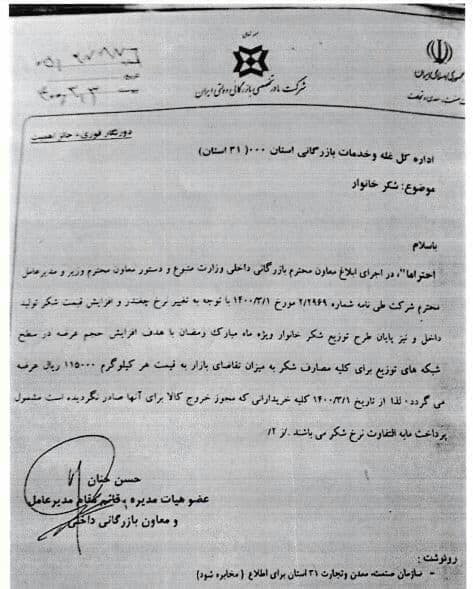 شرکت مادرتخصصی بازرگانی دولتی ایران
دورنگار فوری - حائز اهمیت
اداره کل غله وخدمات بازرگانی استان ۰۰۰( ۳۱ استان)
موضوع: شکر خانوار
باسلام
احتراما"، در اجرای ابلاغ معاون محترم بازرگانی داخلی وزارت متبوع و دستور معاون محترم وزیر و مدیرعامل
محترم شرکت طی نامه شماره ۲/۲۹۶۹ مورخ ۱۴۰۰/۳/۱ با توجه به تغییر نرخ چغندر و افزایش قیمت شکر تولید
داخل و نیز پایان طرح توزیع شکر خانوار ویژه ماه مبارک رمضان با هدف افزایش حجم عرضه در سطح
شبکه های توزیع برای کلیه مصارف شکر به میزان تقاضای بازار به قیمت هر کیلوگرم ۱۱۵۰۰۰ ریال عرضه
می گردد، لذا از تاریخ ۱۴۰۰/۳/۱ کلیه خریدارانی که مجوز خروج کالا برای آنها صادر نگردیده است مشمول
پرداخت مابه التفاوت نرخ شکر می باشند ./ز ۲/
حسن حنان
عضو هیات مدیره ، قائم مقام مدیرعامل
و معاون بازرگانی داخلی
رونوشت :
- سازمان صنعت، معدن وتجارت ۳۱ استان برای اطلاع ( مخابره شود)